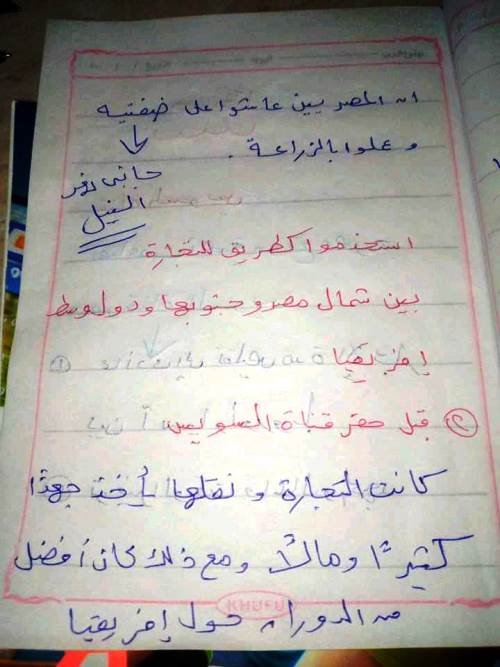 ان المصريين عاشوا على ضفتيه
وعملوا بالزراعة .
جانبى نهر
النيل
استخدموا كطريق للتجارة
بين شمال مصر وجنوبها ودول وسط
إفريقيا
② قبل حفر قناة السويس
كانت التجارة ونقلها يأخذ جهدًا
كثيرًا ومالًا ومع ذلك كان أفضل
من الدوران حول إفريقيا
KHUFU